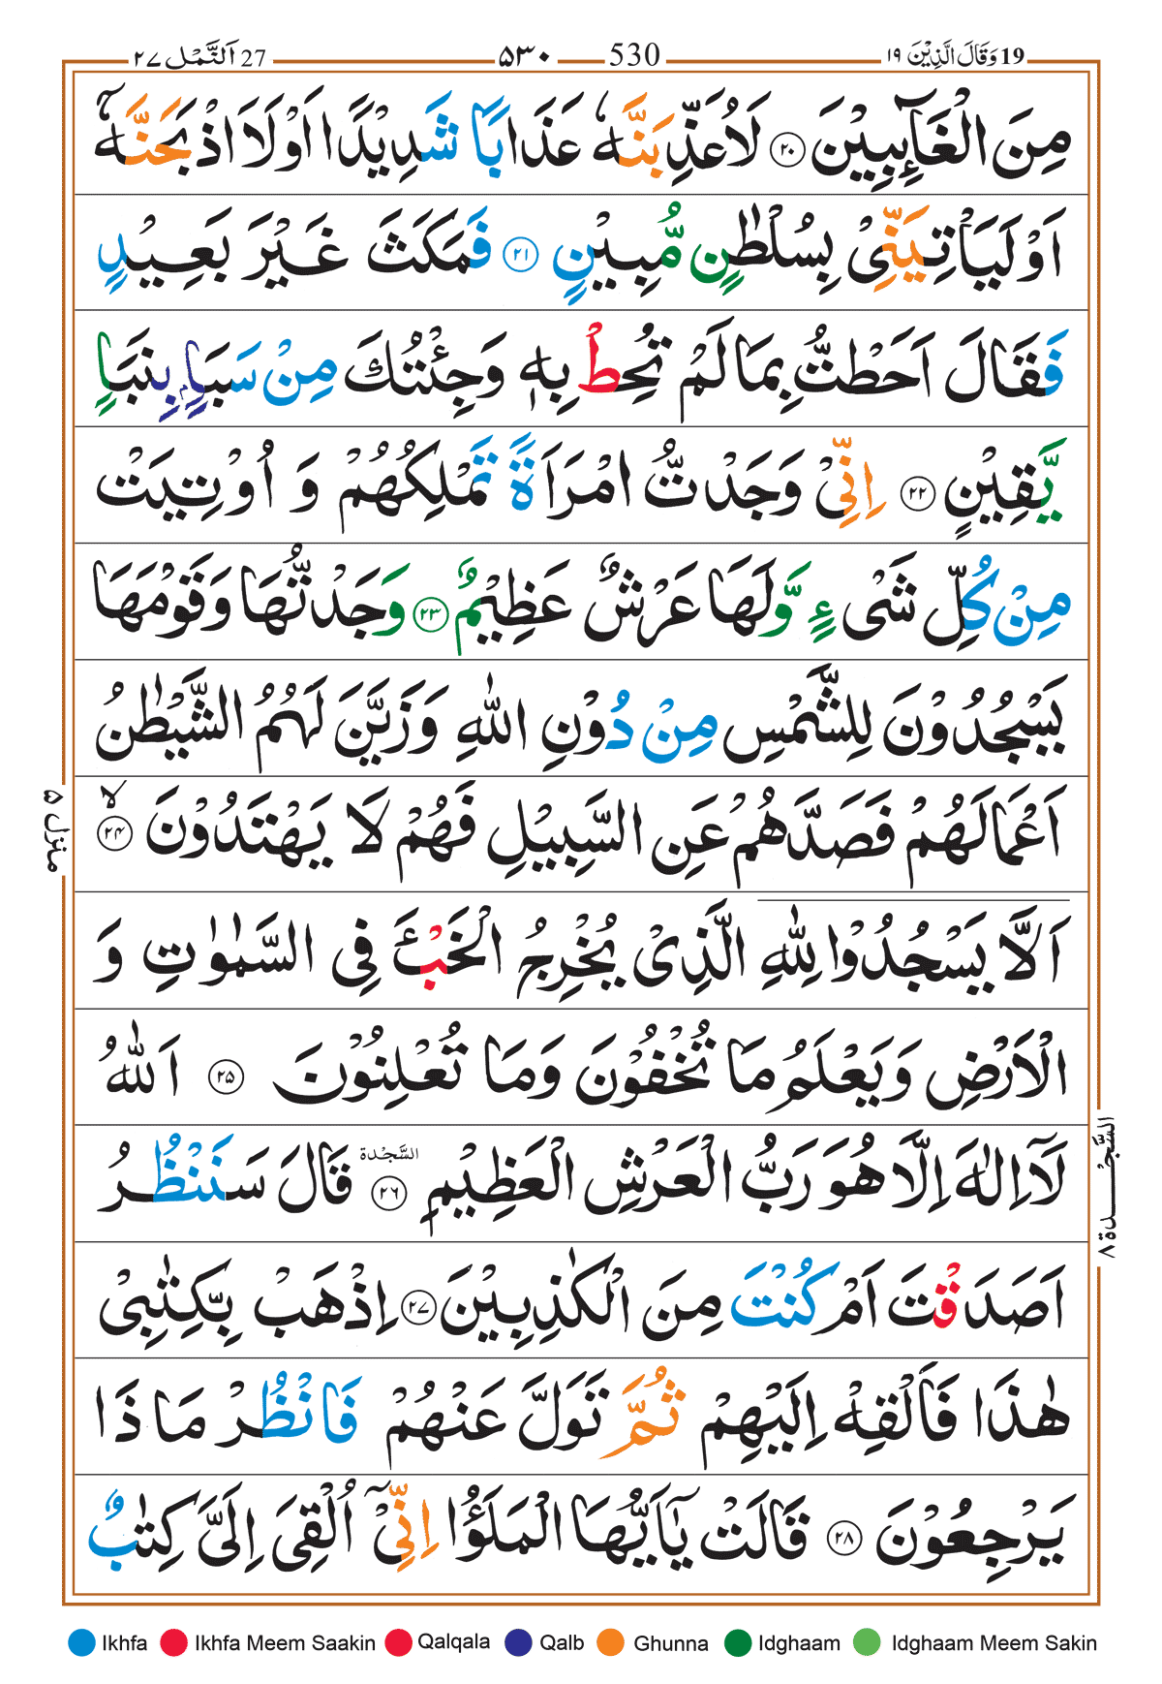 19 وَقَالَ الَّذِيْنَ ١٩ 530 ۵۳۰ 27 اَلنَّمْل ٢٧
مِنَ الْغَآىِٕبِيْنَ ۲۰ لَاُعَذِّبَنَّهٗ عَذَابًا شَدِيْدًا اَوْ لَاَاذْبَحَنَّهٗۤ
اَوْ لَيَاْتِيَنِّيْ بِسُلْطٰنٍ مُّبِيْنٍ ۲۱ فَمَكَثَ غَيْرَ بَعِيْدٍ
فَقَالَ اَحَطْتُّ بِمَا لَمْ تُحِطْ بِهٖ وَجِئْتُكَ مِنْ سَبَاٍۭ بِنَبَاٍ
يَّقِيْنٍ ۲۲ اِنِّيْ وَجَدْتُّ امْرَاَةً تَمْلِكُهُمْ وَ اُوْتِيَتْ
مِنْ كُلِّ شَيْءٍ وَّلَهَا عَرْشٌ عَظِيْمٌ ۲۳ وَجَدْتُّهَا وَقَوْمَهَا
يَسْجُدُوْنَ لِلشَّمْسِ مِنْ دُوْنِ اللّٰهِ وَزَيَّنَ لَهُمُ الشَّيْطٰنُ
اَعْمَالَهُمْ فَصَدَّهُمْ عَنِ السَّبِيْلِ فَهُمْ لَا يَهْتَدُوْنَ ۙ ۲۴
منزل ۵
اَلَّا يَسْجُدُوْا لِلّٰهِ الَّذِيْ يُخْرِجُ الْخَبْءَ فِي السَّمٰوٰتِ وَ
الْاَرْضِ وَيَعْلَمُ مَا تُخْفُوْنَ وَمَا تُعْلِنُوْنَ ۲۵ اَللّٰهُ
لَاۤ اِلٰهَ اِلَّا هُوَ رَبُّ الْعَرْشِ الْعَظِيْمِ ۲۶ السَّجْدَة قَالَ سَنَنْظُرُ
السَّجْدة ۸
اَصَدَقْتَ اَمْ كُنْتَ مِنَ الْكٰذِبِيْنَ ۲۷ اِذْهَبْ بِّكِتٰبِيْ
هٰذَا فَاَلْقِهْ اِلَيْهِمْ ثُمَّ تَوَلَّ عَنْهُمْ فَانْظُرْ مَا ذَا
يَرْجِعُوْنَ ۲۸ قَالَتْ يٰۤاَيُّهَا الْمَلَؤُا اِنِّيْۤ اُلْقِيَ اِلَيَّ كِتٰبٌ
Ikhfa Ikhfa Meem Saakin Qalqala Qalb Ghunna Idghaam Idghaam Meem Sakin